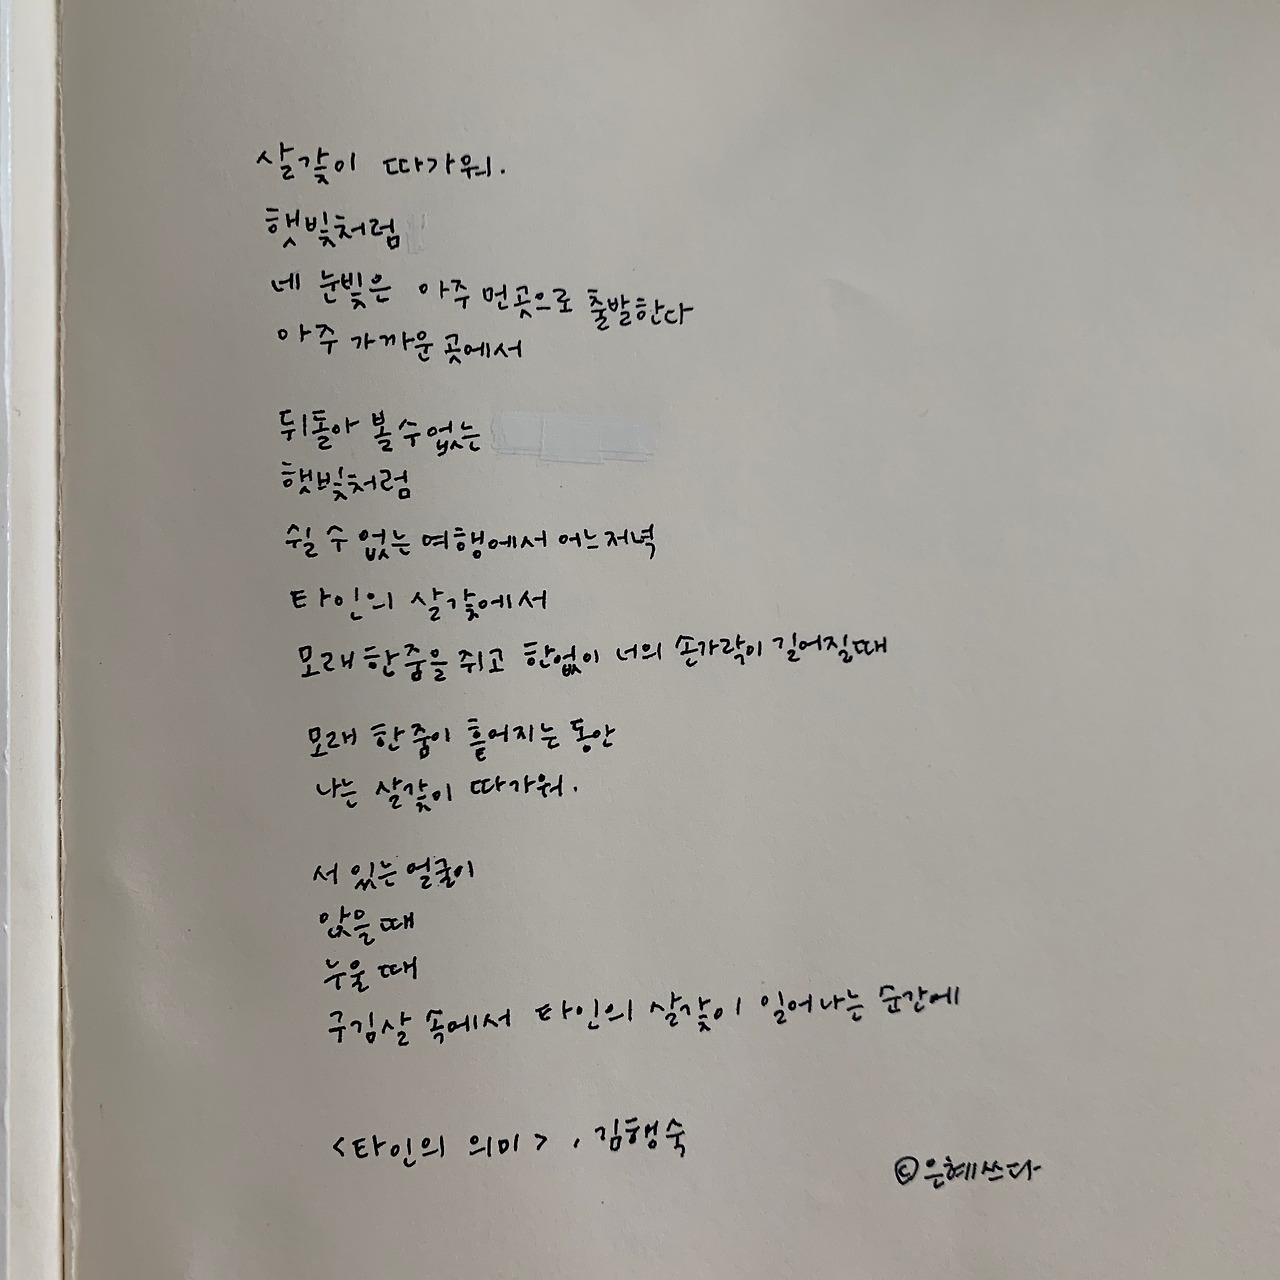 살갗이 따가워.
햇빛처럼
네 눈빛은 아주 먼 곳으로 출발한다
아주 가까운 곳에서
뒤돌아 볼 수 없는
햇빛처럼
쉴 수 없는 여행에서 어느 저녁
타인의 살갗에서
모래 한 줌을 쥐고 한없이 너의 손가락이 길어질 때
모래 한 줌이 흩어지는 동안
나는 살갗이 따가워.
서 있는 얼굴이
앉을 때
누울 때
구김살 속에서 타인의 살갗이 일어나는 순간에
<타인의 의미>, 김행숙
©은혜쓰다